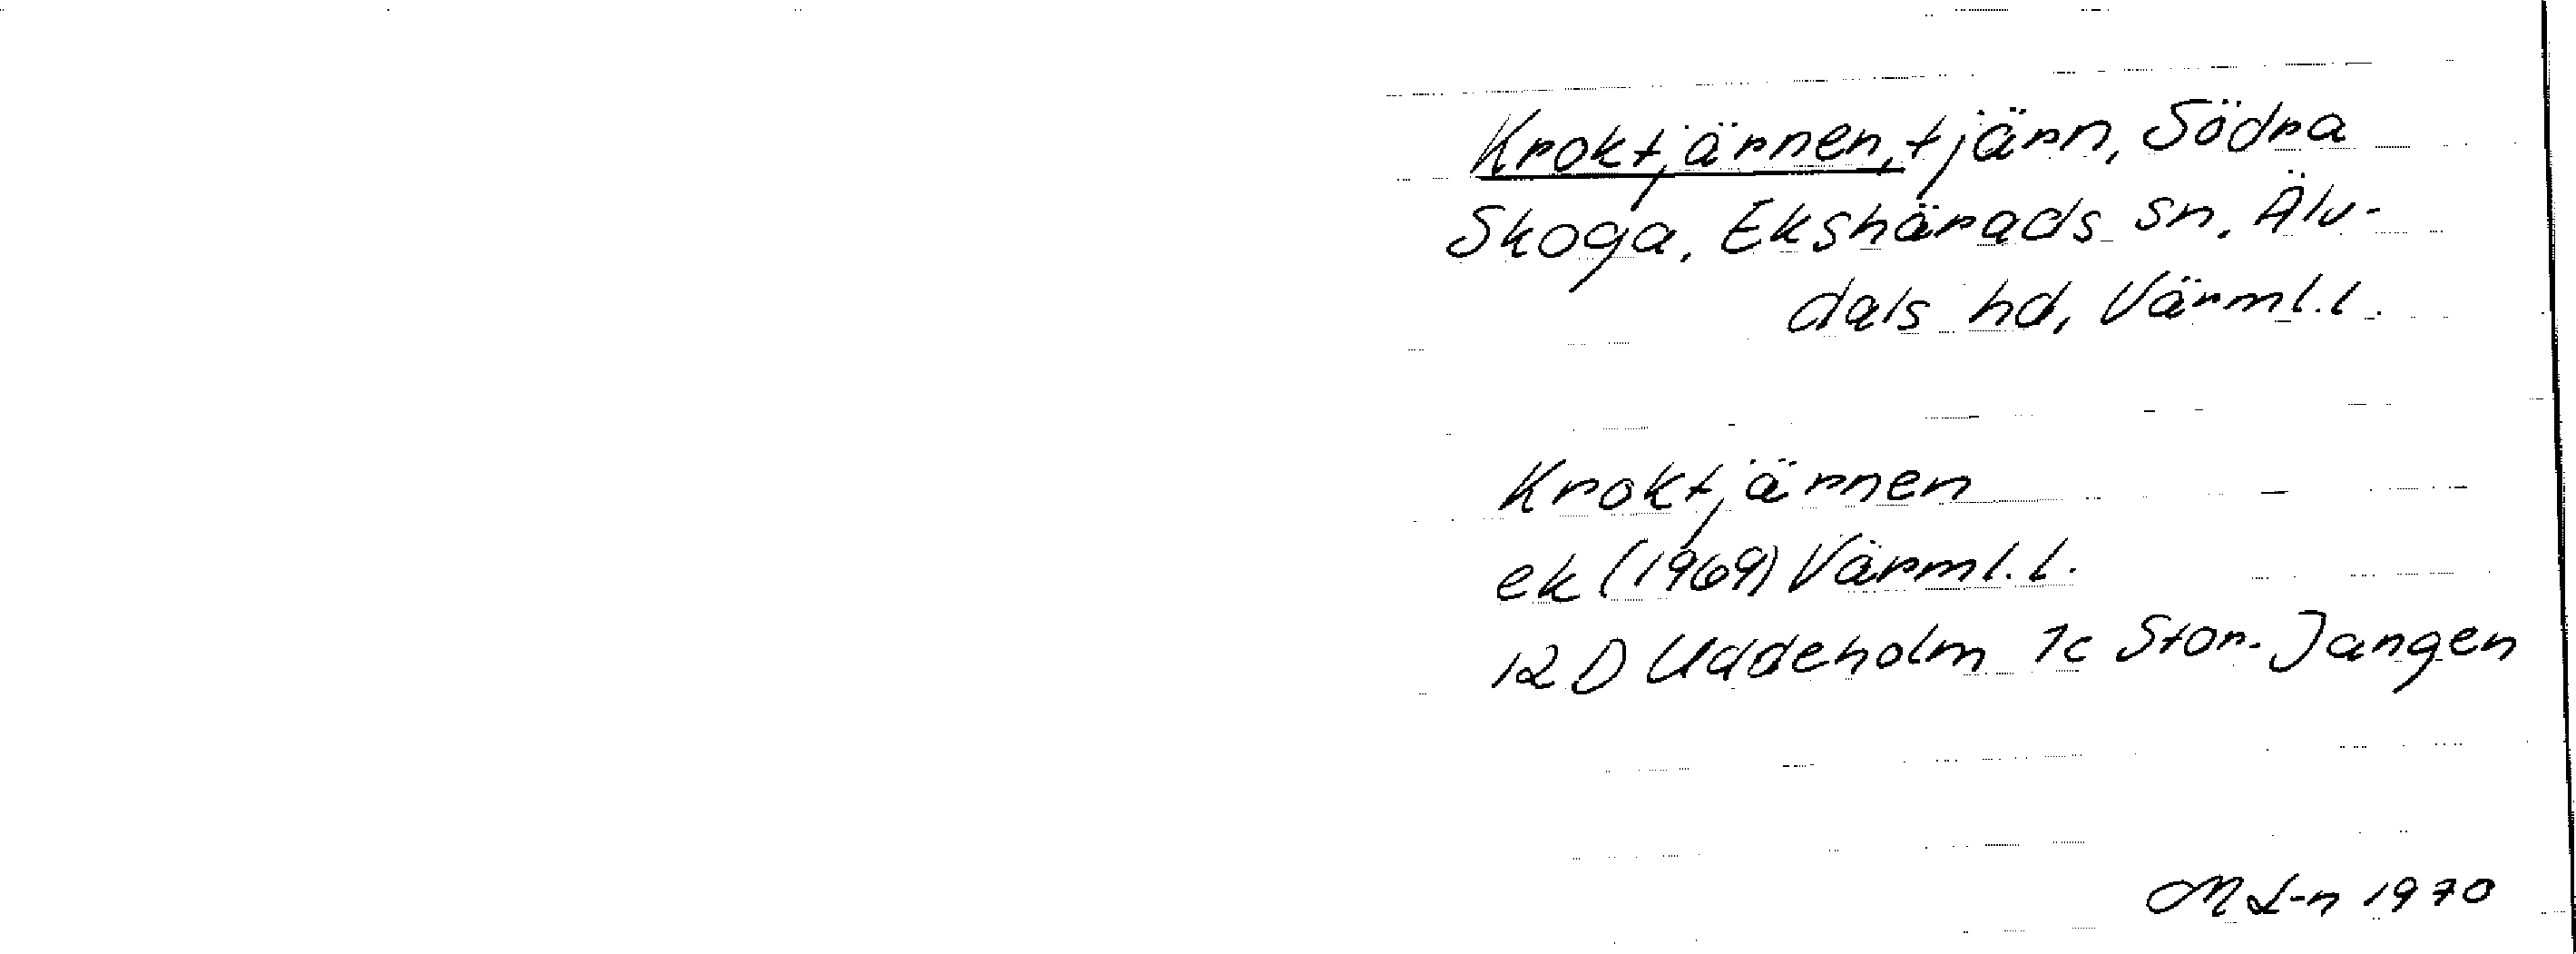 Kroktjärnen, tjärn, Södra
Skoga, Ekshärads sn, Älv-
dals hd, Värml.l.
Kroktjärnen
ek (1969) Värml.l.
12 D Uddeholm 1c Stor-Jangen
M L-n 1970